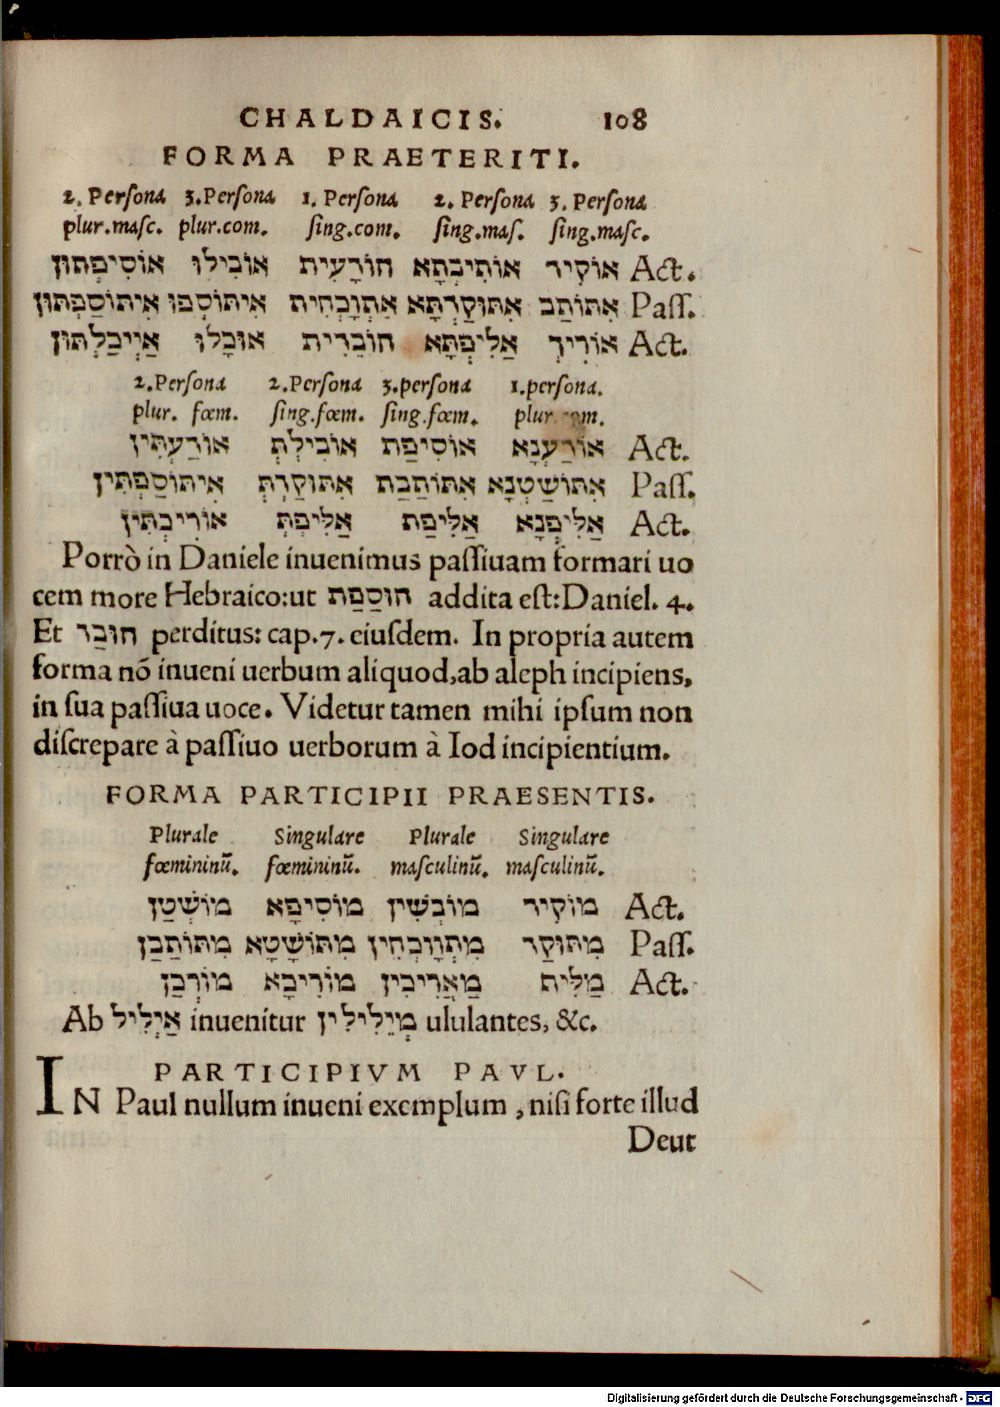 CHALDAICIS. 108
FORMA PRAETERITI.
2. Persona 3. Persona 1. Persona 2. Persona 3. Persona
plur. masc. plur. com. sing. com. sing. mas. sing. masc.
Act. אוֹקִיר אוֹתִיבְתָּא הוֹרָעִית אוֹבִילוּ אוֹסִיפְתּוּן
Pass. אִתּוֹתַב אִתּוּקַרְתָּא אִתְוָכְחִית אִיתּוֹסְפוּ אִיתוֹסַפְתּוּן
Act. אוֹרִיךְ אַלִיפְתָּא הוֹבֵרִית אוּבָלוּ אַיְיבַלְתּוּן
2. Persona 2. Persona 3. persona 1. persona.
plur. fœm. sing. fœm. sing. fœm. plur. com.
Act. אוֹרַעְנָא אוֹסִיפַת אוֹבִילְתְּ אוֹרַעְתִּין
Pass. אִתּוֹשַׁטְנָא אִתּוֹתַבַת אִתּוּקַרְתְּ אִיתּוֹסַפְתִּין
Act. אַלִיפְנָא אַלִיפַת אַלִיפְתְּ אוֹרִיכְתִּין
Porrò in Daniele inuenimus passiuam formari uo
cem more Hebraico: ut הוּסַפַת addita est: Daniel. 4.
Et הוּבַד perditus: cap. 7. eiusdem. In propria autem
forma nō inueni uerbum aliquod, ab aleph incipiens,
in sua passiua uoce. Videtur tamen mihi ipsum non
discrepare à passiuo uerborum à Iod incipientium.
FORMA PARTICIPII PRAESENTIS.
Plurale Singulare Plurale Singulare
fœmininū. fœmininū. masculinū. masculinū.
Act. מוֹקִיר מוֹבְשִׁין מוֹסִיפָא מוֹשְׁטַן
Pass. מִתּוּקַר מִתְוַוכְחִין מִתּוֹשָׁטָא מִתּוֹתַבַן
Act. מַלִּיף מַאֲרִיכִין מוֹרִיכָא מוֹרְכַן
Ab אַיְלִיל inuenitur מְיַלִילִין ululantes, &c.
PARTICIPIVM PAVL.
IN Paul nullum inueni exemplum, nisi forte illud
Deut
Digitalisierung gefördert durch die Deutsche Forschungsgemeinschaft - DFG